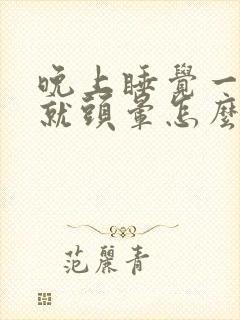 晚上睡覺一
就頭暈怎麼
范麗青